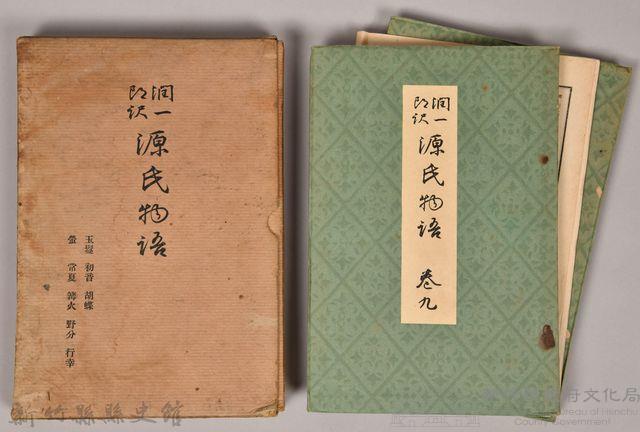 潤一
郎訳
源氏物語
玉鬘 初音 胡蝶
螢 常夏 篝火 野分 行幸
潤一
郎訳
源氏物語 卷九
新竹縣縣史館
府文化局
Bureau of Hsinchu
County Government